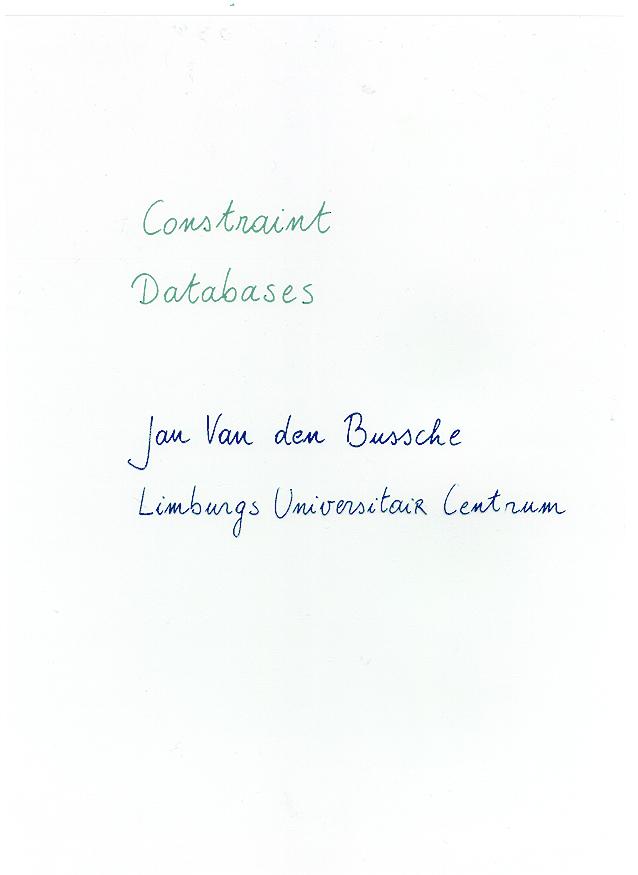 Constraint
Databases
Jan Van den Bussche
Limburgs Universitair Centrum